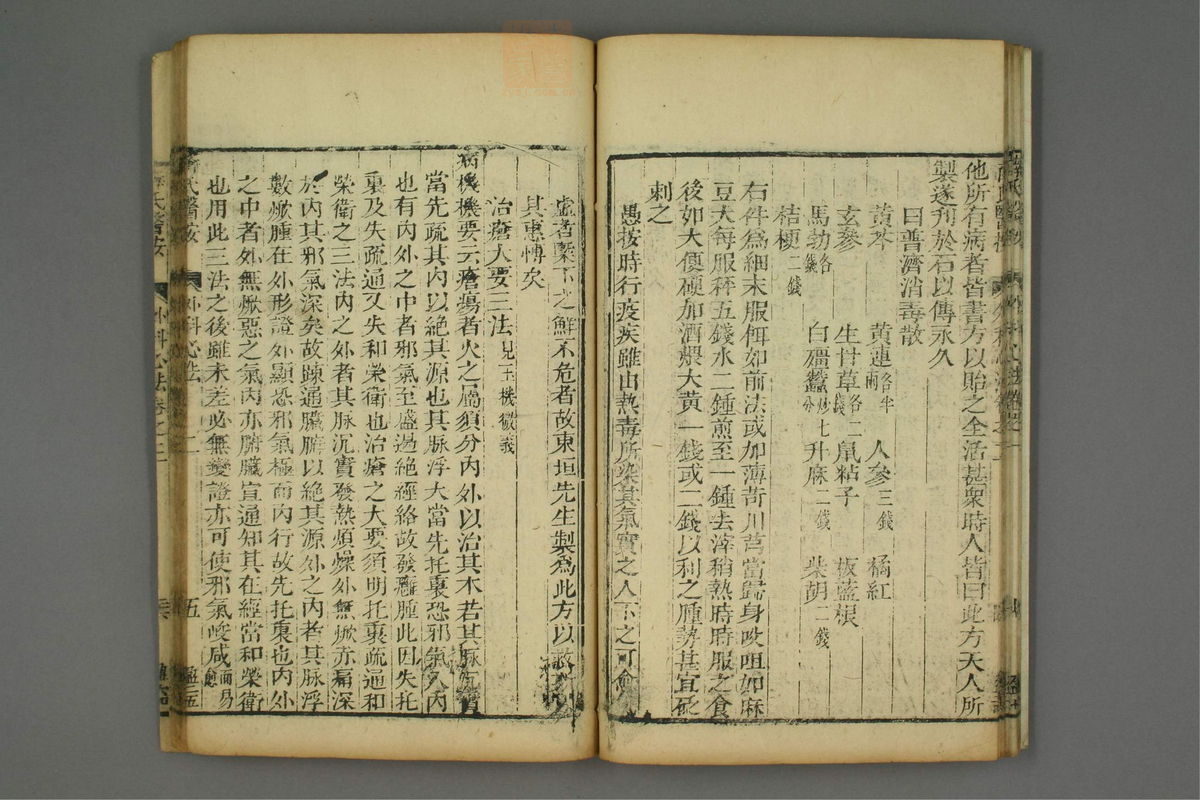 他所有病者皆書方以貽之全活甚衆時人皆曰此方天人所
製遂刋於石以傳永久
曰普濟消毒散
黃芩 黃連各半兩 人參三錢 橘紅
玄參 生甘草各二錢 鼠粘子 板藍根
馬勃各一錢 白殭蠶炒七分 升麻二錢 柴胡二錢
桔梗二錢
右件爲細末服餌如前法或加薄荷川芎當歸身㕮咀如麻
豆大每服秤五錢水二鍾煎至一鍾去滓稍熱時時服之食
後如大便硬加酒煨大黃一錢或二錢以利之腫勢甚宜砭
刺之
愚按時行疫疾雖由熱毒所染其氣實之人下之可愈
虛者槩下之鮮不危者故東垣先生製爲此方以救
其惠愽矣
治瘡大要三法見玉機微義
病機機要云瘡瘍者火之屬須分內外以治其木若其脉沉實
當先疏其內以絶其源也其脉浮大當先托裏恐邪氣入內
也有內外之中者邪氣至盛遏絶經絡故發癰腫此因失托
裏及失疏通又失和榮衛也治瘡之大要須明托裏疏通和
榮衛之三法內之外者其脉沉實發熱煩燥外無焮赤痛深
於內其邪氣深矣故踈通臟腑以絶其源外之內者其脉浮
數焮腫在外形證外顯恐邪氣極而內行故先托裏也內外
之中者外無焮惡之氣內亦腑臟宣通知其在經當和榮衛
也用此三法之後雖未差必無變證亦可使邪氣峻减而易愈
薛氏醫按 外科心法卷之二 五